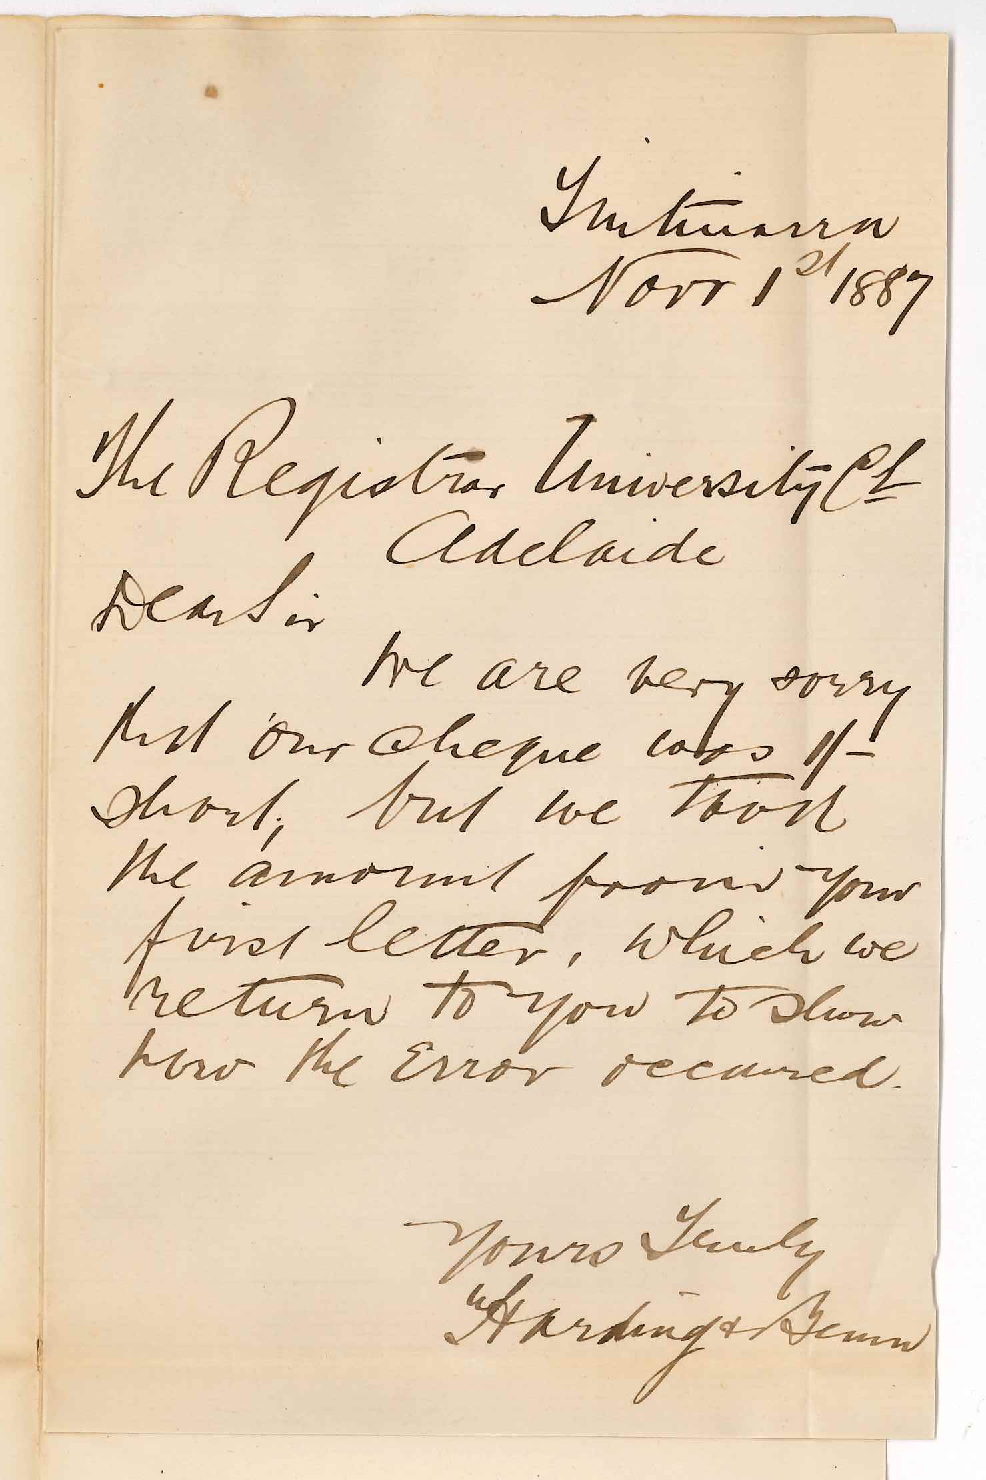 Tintinarra
Novr 1st 1887
The Registrar University
Adelaide
Dear Sir
We are very sorry
that our cheque was 1/-
short, but we took
the amount from your
first letter, which we
return to you to show
how the Error occured.
Yours Truly
Harding &